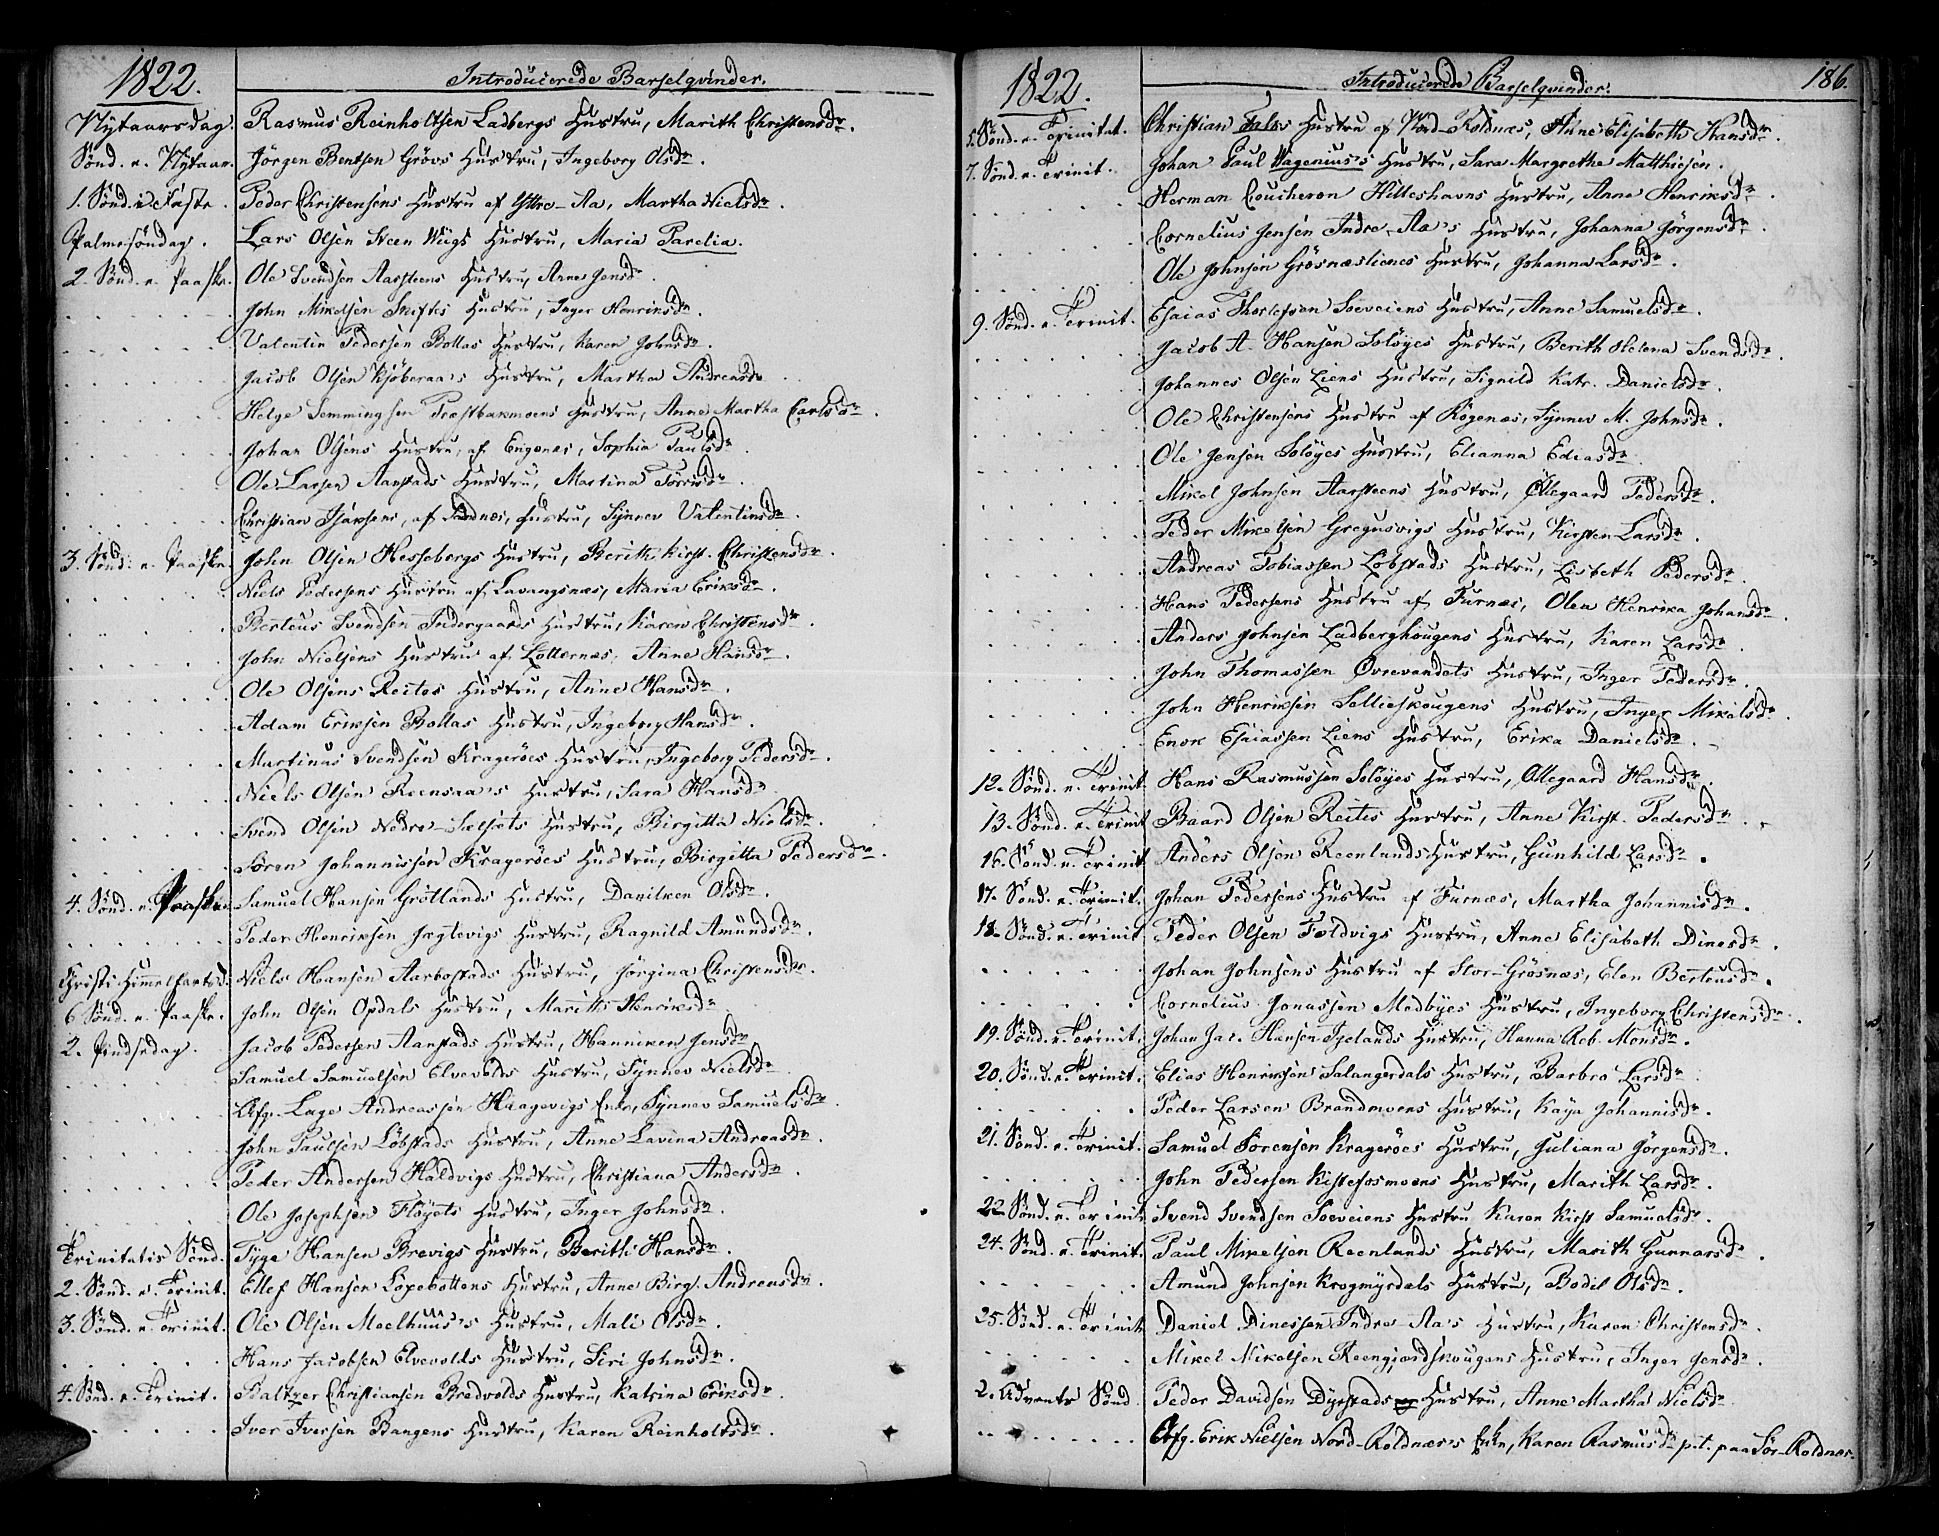 1822. Introducerede Barselqvinder.
Nytaarsdag. Rasmus Reinholtsen Ladbergs Hustru, Marith Christensdr.
Sönd. e. Nytaar. Jörgen Bentsen Grövs Hustru, Ingeborg Olsdr.
1. Sönd. i Faste. Peder Christensens Hustru af Yttre-Aa, Martha Nielsdr.
Palmesöndag. Lars Olsen Steen Wiigs Hustru, Maria Parelia.
2. Sönd. e. Paaske. Ole Svendsen Aarsteens Hustru, Anne Jensdr.
John Mikelsen Skiftes Hustru, Inger Henriksdr.
Valentin Pedersen Bollas Hustru, Karen Johnsdr.
Jacob Olsen Kjöberaa's Hustru, Martha Andreasdr.
Helge Semmingsen Præstbakmoens Hustru, Anne Martha Carlsdr.
Johan Olsens Hustru, af Engenes, Sophia Paulsdr.
Ole Larsen Aanstads Hustru, Martina Törrisdr.
Christian Isaksens, af Sandnæs, Hustru, Synnev Valentinsdr.
3. Sönd. e. Paaske. John Olsen Hessebergs Hustru, Berith Kirst. Christensdr.
Niels Pedersens Hustru af Lavangsnæs, Maria Eriksdr.
Berteus Svendsen Indergaards Hustru, Karen Christensdr.
John Nielsens Hustru af Lotternæs, Anne Hansdr.
Ole Olsens Reites Hustru, Anne Hansdr.
Adam Eriksen Bollas Hustru, Ingeborg Hansdr.
Martinus Svendsen Krageröes Hustru, Ingeborg Pedersdr.
Niels Olsen Reensaa's Hustru, Sara Hansdr.
Svend Olsen Nedre-Sælsets Hustru, Birgitta Nielsdr.
Sören Johannissen Krageröes Hustru, Birgitta Pedersdr.
4. Sönd. e. Paaske. Samuel Hansen Grötlands Hustru, Danilken Olsdr.
Peder Henriksen Jægtevigs Hustru, Ragnild Amundsdr.
Christi Himmelfartsd. Niels Hansen Aarbostads Hustru, Jörgina Christensdr.
6. Sönd. e. Paaske. John Olsen Opdals Hustru, Marith Henriksdr.
2. Pindsedag. Jacob Pedersen Aanstads Hustru, Hanniken Jensdr.
Samuel Samuelsen Elvevolds Hustru, Synnev Nielsdr.
Afg. Lage Andreassen Haagevigs Enke, Synnev Samuelsdr.
John Paulsen Löbstads Hustru, Anne Lavina Andreasdr.
Peder Andersen Haldvigs Hustru, Christiana Andersdr.
Ole Josephsen Flöyets Hustru, Inger Johnsdr.
Trinitatis Sönd. Tyge Hansen Brevigs Hustru, Berith Hansdr.
2. Sönd. e. Trinit. Ellef Hansen Löpebottens Hustru, Anne Birg. Andreasdr.
3. Sönd. e. Trinit. Ole Olsen Moelhuus's Hustru, Mali Olsdr.
Hans Jacobsen Elvevolds Hustru, Siri Johnsdr.
4. Sönd. e. Trinit. Baltzer Christiansen Bredvolds Hustru, Katrina Eriksdr.
Iver Iversen Bangens Hustru, Karen Reinholtsdr.
1822. Introducerede Barselqvinder. 186.
5. Sönd. e. Trinitat. Christian Falcks Hustru af Nord-Roldnæs, Anne Elisabeth Hansdr.
7. Sönd. e. Trinit. Johan Paul Wagenius's Hustru, Sara Margretha Matthiesen.
Herman Coucheron Hilleshavns Hustru, Anne Henriksdr.
Cornelius Jensen Indre-Aa's Hustru, Johanna Jörgensdr.
Ole Johnsen Grösnæslienes Hustru, Johanna Larsdr.
9. Sönd. e. Trinit. Esaias Thorlefsen Soeveiens Hustru, Anne Samuelsdr.
Jacob A. Hansen Solöyes Hustru, Berith Helena Svendsdr.
Johannes Olsen Liens Hustru, Signild Katr. Danielsdr.
Ole Christensens Hustru af Rögenæs, Synnev M. Johnsdr.
Ole Jensen Solöyes Hustru, Elianna Ediasdr.
Mikel Johnsen Aarsteens Hustru, Ollegaard Pedersdr.
Peder Mikelsen Gregusvigs Hustru, Kirsten Larsdr.
Andreas Tobiassen Löbstads Hustru, Lisbeth Pedersdr.
Hans Pedersens Hustru af Furnæs, Olea Henrika Johansdr.
Anders Johnsen Ladberghougens Hustru, Karen Larsdr.
John Thomassen Övrevandets Hustru, Inger Pedersdr.
John Henriksen Sellieskougens Hustru, Inger Mikelsdr.
Enok Esaiassen Liens Hustru, Erika Danielsdr.
12. Sönd. e. Trinit. Hans Rasmussen Solöyes Hustru, Ollegaard Hansdr.
13. Sönd. e. Trinit. Baard Olsen Reites Hustru, Anne Kirst. Pedersdr.
16. Sönd. e. Trinit. Anders Olsen Reenlands Hustru, Gunhild Larsdr.
17. Sönd. e. Trinit. Johan Pedersens Hustru af Furnæs, Martha Johannisdr.
18. Sönd. e. Trinit. Peder Olsen Foldvigs Hustru, Anne Elisabeth Dinesdr.
Johan Johnsens Hustru af Stor-Grösnæs, Elen Berteusdr.
Cornelius Jonassen Medbyes Hustru, Ingeborg Christensdr.
19. Sönd. e. Trinit. Johan Jac. Hansen Tjelands Hustru, Hanna Reb. Monsdr.
20. Sönd. e. Trinit. Elias Henriksen Salangerdals Hustru, Barbro Larsdr.
Peder Larsen Brandmoens Hustru, Kaya Johannisdr.
21. Sönd. e. Trinit. Samuel Sörensen Krageröes Hustru, Juliana Jörgensdr.
John Pedersen Kistefosmoens Hustru, Marith Larsdr.
22. Sönd. e. Trinit. Svend Svendsen Soeveiens Hustru Karen Kirst Samuelsdr.
24. Sönd. e. Trinit. Paul Mikelsen Reenlands Hustru, Marith Gunnarsdr.
Amund Johnsen Krogmyrdals Hustru, Bodil Olsdr.
25. Sönd. e. Trinit. Daniel Dinessen Indre Aa's Hustru, Karen Christensdr.
Mikel Mikelsen Reengjerdskougens Hustru, Inger Jensdr.
2. Advents Sönd. Peder Davidsen Dyrstads Hustru, Anne Martha Nielsdr.
Afg. Erik Nielsen Nord-Roldnæs's Enke, Karen Rasmusdr. p. t. paa Sör-Roldnæs.